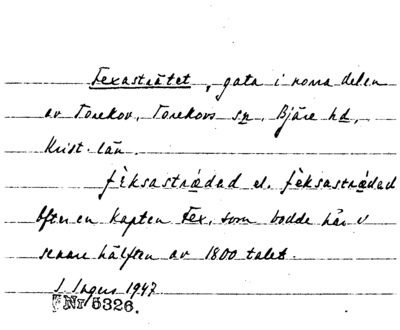 Fexasträtet, gata i norra delen
av Torekov, Torekovs sn, Bjäre hd,
Krist. län.
fèksastrǽdad el. fèksastrǽdad
Efter en kapten Fex, som bodde här
senare hälften av 1800 talet.
I Ingers 1947
Nr 5326.